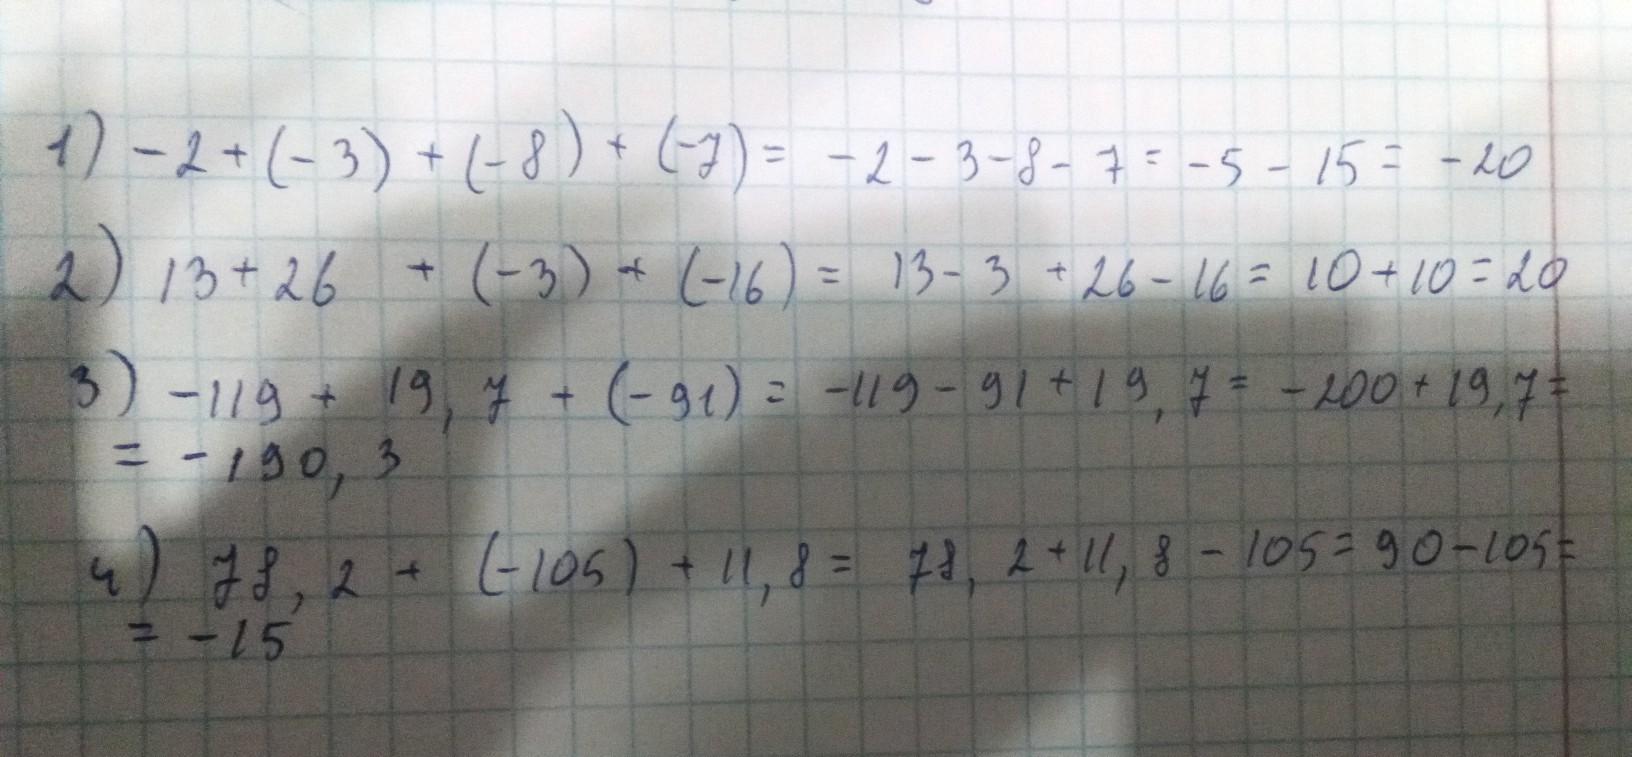 1) -2+(-3)+(-8)+(-7)= -2-3-8-7=-5-15= -20
2) 13+26 +(-3)+(-16)= 13-3+26-16=10+10=20
3) -119+ 19,7 +(-91)= -119-91+19,7=-200+19,7=
= -190,3
4) 78,2 + (-105)+11,8= 78,2+11,8-105=90-105=
= -15